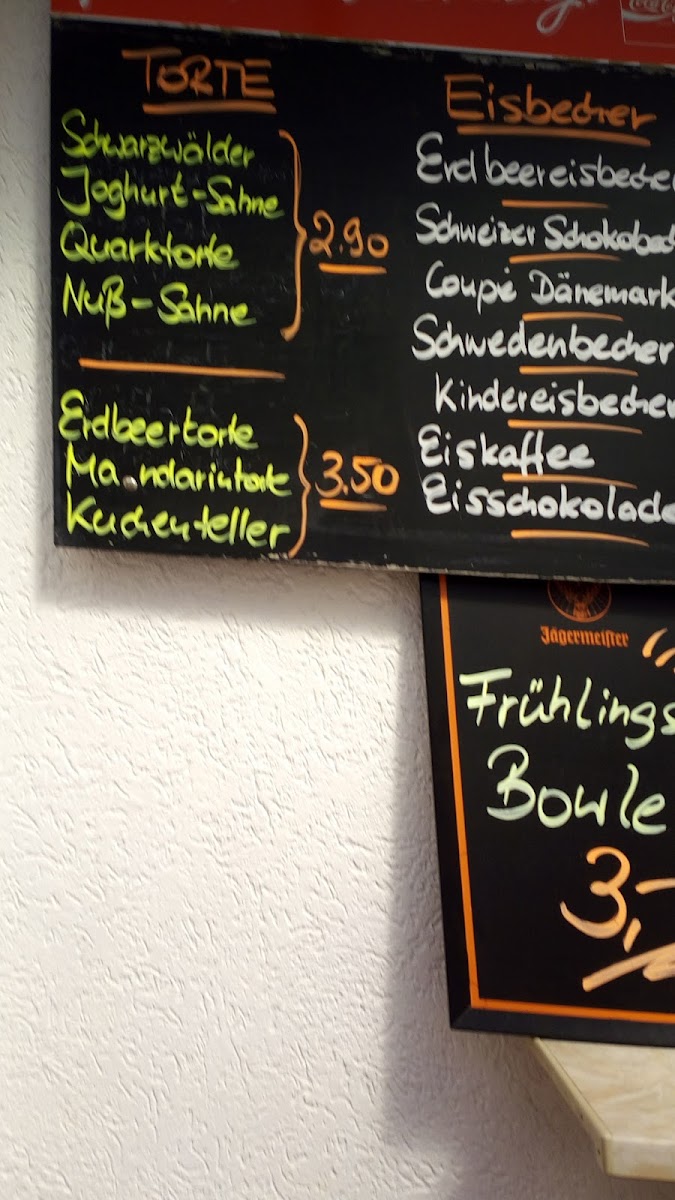 TORTE
Schwarzwälder
Joghurt-Sahne
Quarktorte
Nuß-Sahne
2.90
Erdbeertorte
Mandarintorte
Kuchenteller
3.50
Eisbecher
Erdbeereisbeche
Schweizer Schokobec
Coupé Dänemark
Schwedenbecher
Kindereisbecher
Eiskaffee
Eisschokolade
Jägermeister
Frühlings
Bowle
3,-